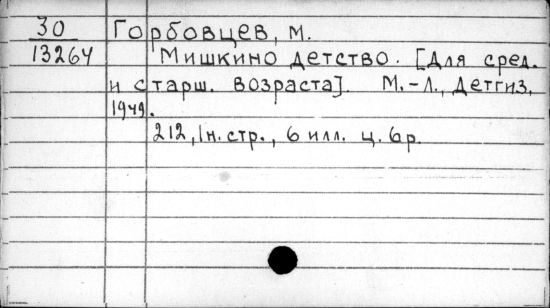 30 Горбовцев, М.
13264 Мишкино детство. [Для сред.
и старш. возраста]. М.-Л., Детгиз,
1949.
212, 1н. стр., 6 илл. ц. 6р.